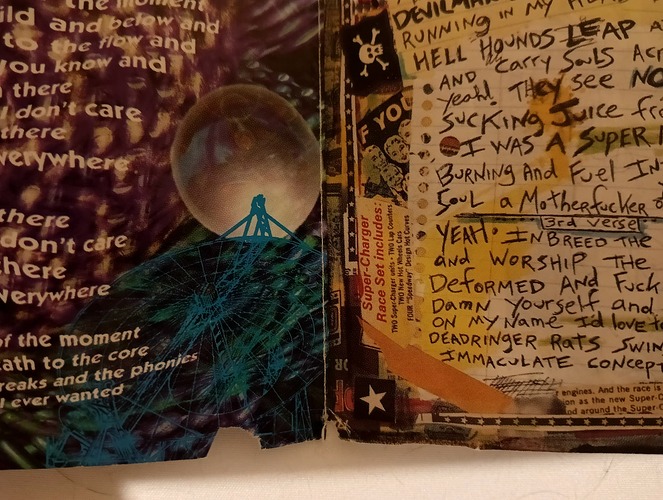 the moment
ild and below and
to the flow and
you know and
there
I don't care
there
verywhere
there
don't care
here
verywhere
of the moment
ath to the core
reaks and the phonies
I ever wanted
DEVILMA
RUNNING IN MY
HELL HOUNDS LEAP A
AND CARRY SOULS ACR
Yeah! They see NO
SUCKING JUICE fro
I WAS A SUPER
BURNING AND FUEL IN
SOUL a Motherfucker
3rd verse
YEAH. INBREED THE
and WORSHIP THE
DEFORMED AND FUCK
DAMN yourself and
ON MY NAME Id love to
DEADRINGER RATS SWIN
IMMACULATE CONCEPT
F YOU
Super-Charger
Race Set includes:
TWO Super-Charger units • TWO Lap Counters
TWO New Hot Wheels Cars
FOUR "Speedway" Design Hot Curves
engines. And the race is
on as the new Super-C
nd around the Super-